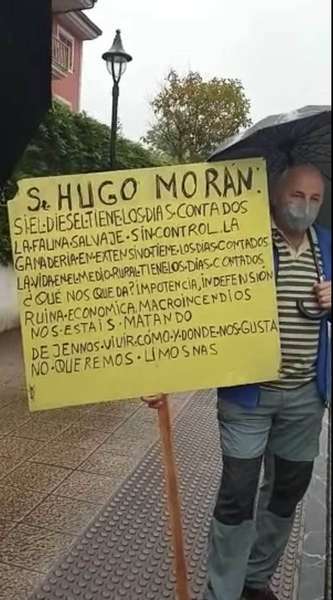 Sr HUGO MORÁN:
SI·EL·DIESEL·TIENE·LOS·DIAS·CONTADOS
LA·FAUNA·SALVAJE·SIN·CONTROL...LA
GANADERIA·EN·EXTENSIVO·TIENE·LOS·DIAS·CONTADOS
LA·VIDA·EN·EL·MEDIO·RURAL·TIENE·LOS·DIAS·CONTADOS
¿QUÉ NOS·QUEDA? IMPOTENCIA, INDEFENSIÓN
RUINA·ECONOMICA, MACROINCENDIOS
NOS·ESTAIS·MATANDO
DEJENNOS·VIVIR·CÓMO·Y·DONDE·NOS·GUSTA
NO·QUEREMOS·LIMOSNAS